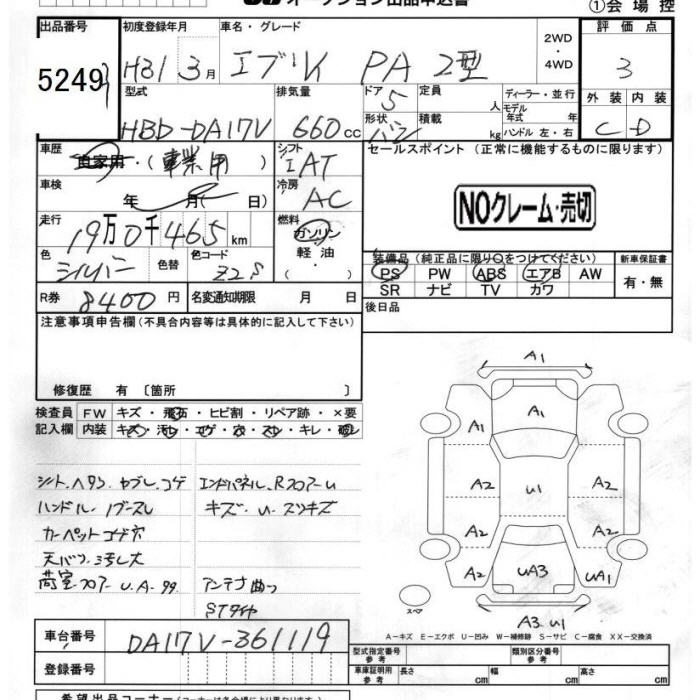 ①会場控
出品番号
5249
初度登録年月
H31 3月
車名・グレード
エブリイ PA 2型
2WD
・
4WD
評価点
3
型式
HBD-DA17V
排気量
660cc
ドア
5
形状
バン
定員
人
積載
kg
ディーラー・並行
モデル
年式 年
ハンドル 左・右
外装
内装
C
D
車歴
自家用・(事業用)
シフト
IAT
車検
年 月( 日)
冷房
AC
走行
19万0千465km
燃料
ガソリン
軽油・
( )
色
シルバー
色替
色コード
Z2S
R券
8400円
名変通知期限 月 日
セールスポイント(正常に機能するものに限ります)
NOクレーム・売切
装備品(純正品に限り○をつけてください)
PS PW ABS エアB AW
SR ナビ TV カワ
新車保証書
有・無
後日品
注意事項申告欄(不具合内容等は具体的に記入して下さい)
修復歴 有〔箇所 〕
検査員
記入欄
FW キズ・飛石・ヒビ割・リペア跡・×要
内装
シート、ヘタン、ヤブレ、コゲ
ハンドル、ノブ−スレ
カーペットコゲ穴
天バリ、ヨゴレ大
荷室フロアーU.A.99
エンドパネル、Rフロアーu
キズ、u、スリキズ
アンテナ曲り
STタイヤ
A1
A1
A1
A2
U1
A2
A2
A2
A2
UA3
UA1
A3 U1
スペア
A−キズ E−エクボ U−凹み W−補修跡 S−サビ C−腐食 XX−交換済
車台番号
DA17V-361119
登録番号
型式指定番号
参考
類別区分番号
参考
車庫証明用
参考
長さ cm
幅 cm
高さ cm
希望出品コーナー